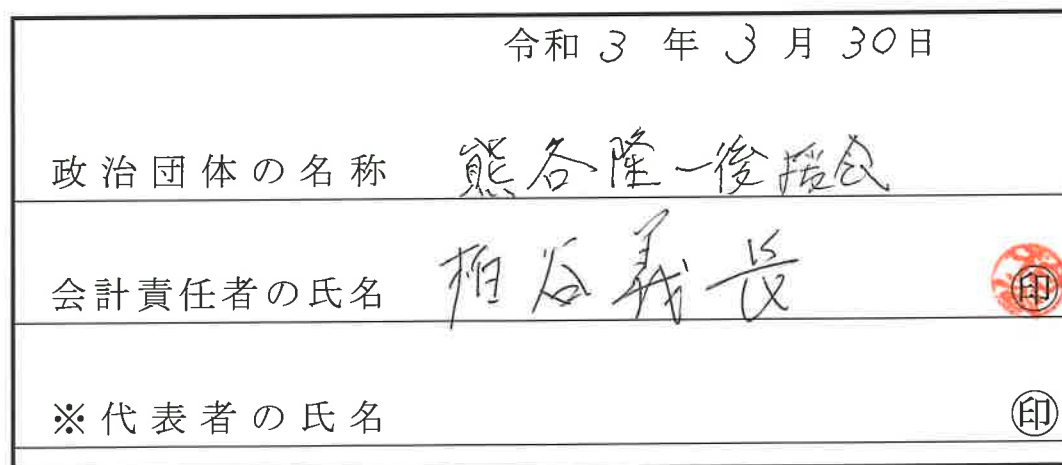 令和3年3月30日
政治団体の名称 熊谷隆一後援会
会計責任者の氏名 柏谷義長 印
※代表者の氏名 印